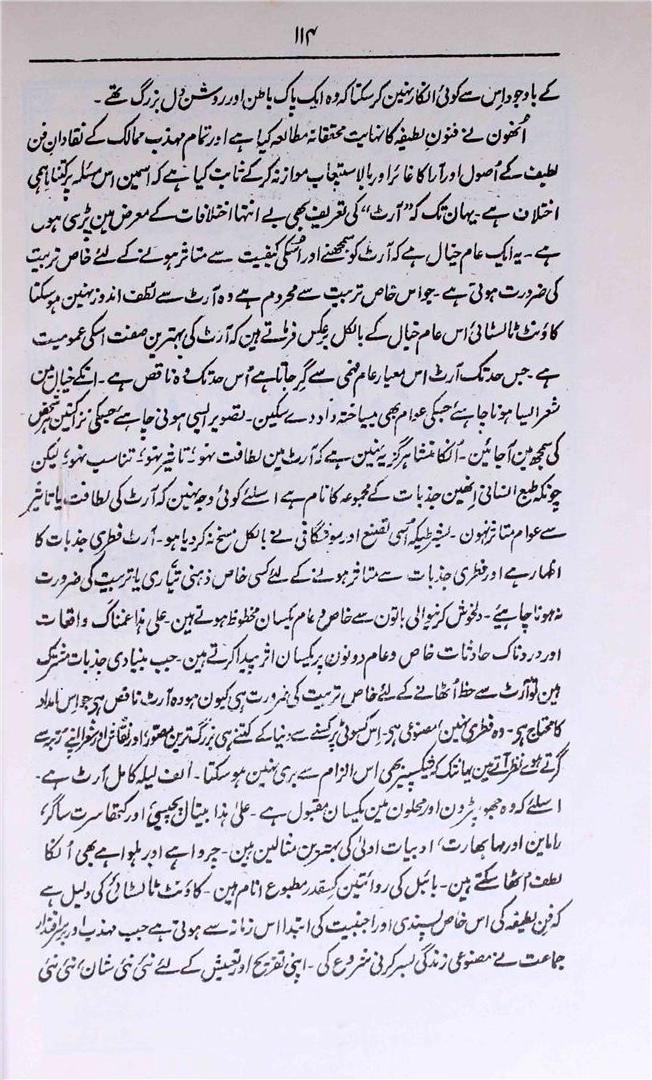 ۱۱۴
کے باوجود اس سے کوئی انکار نہین کر سکتا کہ وہ ایک پاک باطن اور روشن دل بزرگ تھے ۔
اُنھون نے فنونِ لطیفہ کا نہایت محققانہ مطالعہ کیا ہے اور تمام مہذب ممالک کے نقادانِ فن
لطیف کے اُصول اور آرا کا غائر اور بالاستیعاب موازنہ کر کے ثابت کیا ہے کہ اسمین اس مسئلہ پر کتنا باہمی
اختلاف ہے ۔ یہان تک کہ ”آرٹ“ کی تعریف بھی بے انتہا اختلافات کے معرض مین پڑی ہوئی
ہے ۔ یہ ایک عام خیال ہے کہ آرٹ کو سمجھنے اور اُسکی کیفیت سے متاثر ہونے کے لئے خاص تربیت
کی ضرورت ہوتی ہے ۔ جو اس خاص تربیت سے محروم ہے وہ آرٹ سے لطف اندوز نہین ہو سکتا
کاؤنٹ ٹالسٹائی اس عام خیال کے بالکل برعکس فرماتے ہین کہ آرٹ کی بہترین صفت اسکی عمومیت
ہے ۔ جس حد تک آرٹ اس معیار عام فہمی سے گر جاتا ہے اُس حد تک وہ ناقص ہے ۔ انکے خیال مین
شعر ایسا ہونا چاہئے جسکی عوام بھی بیساختہ داد دے سکین ۔ تصویر ایسی ہونی چاہئے جسکی نزاکتین ہر شخص
کی سمجھ مین آ جائین ۔ اُنکا منشا ہرگز یہ نہین ہے کہ آرٹ مین لطافت نہو، تاثیر نہو، تناسب نہو، لیکن
چونکہ طبع انسانی انھین جذبات کے مجموعہ کا نام ہے اسلئے کوئی وجہ نہین کہ آرٹ کی لطافت یا تاثیر
سے عوام متاثر نہون ۔ بشرطیکہ اُسے تصنع اور موشگافی نے بالکل مسخ نہ کر دیا ہو ۔ آرٹ فطری جذبات کا
اظہار ہے اور فطری جذبات سے متاثر ہونے کے لئے کسی خاص ذہنی تیاری یا تربیت کی ضرورت
نہ ہونا چاہیئے ۔ دلخوش کرنیوالی باتون سے خاص و عام یکسان محظوظ ہوتے ہین ۔ علی ہذا غمناک واقعات
اور دردناک حادثات خاص و عام دونون پر یکسان اثر پیدا کرتے ہین ۔ جب بنیادی جذبات مشترک
ہین تو آرٹ سے حظ اُٹھانے کے لئے خاص تربیت کی ضرورت ہی کیون ہو وہ آرٹ ناقص ہی جو اس امداد
کا محتاج ہی ۔ وہ فطری نہین، مصنوعی ہی ۔ اِس کسوٹی پر کسنے سے دنیا کے کتنے ہی بزرگ ترین مصور اور نقاش اور شعرا اپنے رتبہ سے
گرتے ہوئے نظر آتے ہین یہانتک کہ شیکسپیر بھی اس الزام سے بری نہین ہو سکتا ۔ الف لیلہ کامل آرٹ ہے ۔
اسلئے کہ وہ جھونپڑون اور محلون مین یکسان مقبول ہے ۔ علیٰ ہذا بیتال پچیسی اور کتھا سرت ساگر،
راماین اور مہابھارت، ادبیات اولیٰ کی بہترین مثالین ہین ۔ چرواہے اور ہلواہے بھی اُنکا
لطف اُٹھا سکتے ہین ۔ بائبل کی روائتین کسقدر مطبوع انام ہین ۔ کاؤنٹ ٹالسٹائی کی دلیل ہے
کہ فن لطیفہ کی اس خاص پسندی اور اجنبیت کی ابتدا اس زمانہ سے ہوتی ہے جب مہذب اور برِاقتدار
جماعت نے مصنوعی زندگی بسر کرنی شروع کی ۔ اپنی تفریح اور تعیش کے لئے نئی نئی شان، نئی نئی